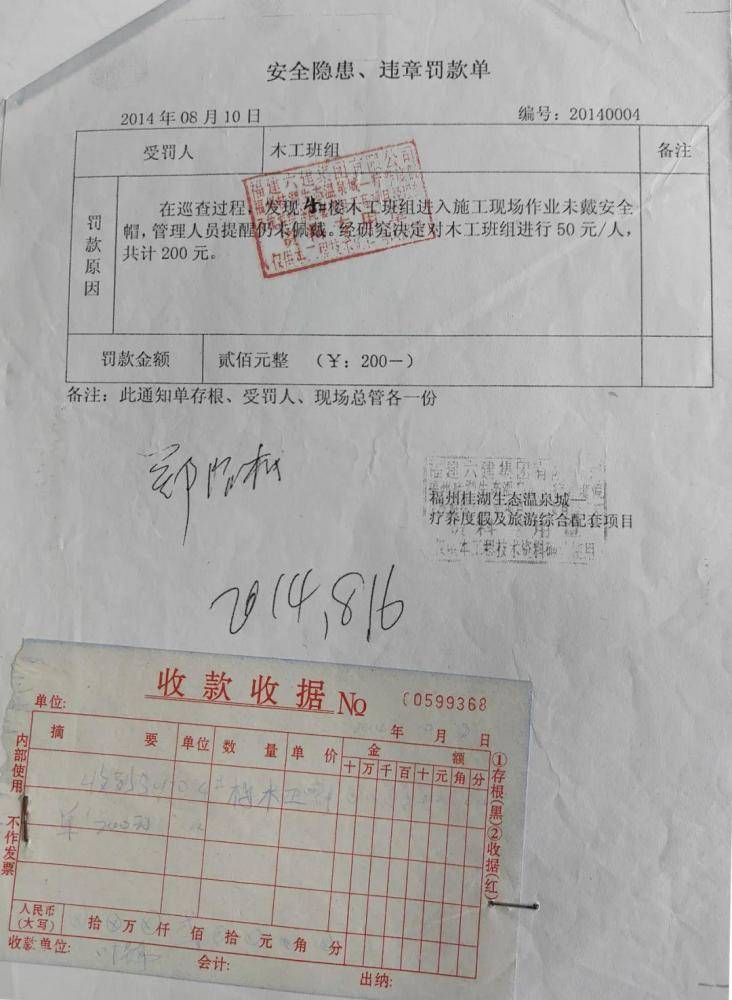 安全隐患、违章罚款单
2014年08月10日 编号：20140004
受罚人 木工班组 备注
罚款原因
在巡查过程，发现4#楼木工班组进入施工现场作业未戴安全
帽，管理人员提醒仍未佩戴。经研究决定对木工班组进行50元/人，
共计200元。
罚款金额 贰佰元整 （¥：200—）
备注：此通知单存根、受罚人、现场总管各一份
福建六建集团有限公司
福州桂湖生态温泉城—
疗养度假及旅游综合配套项目
2014,8,16
收款收据 No 0599368
单位: 年 月 日
摘要 单位 数量 单价 金额
十 万 千 百 十 元 角 分
木工
单
人民币(大写) 拾 万 仟 佰 拾 元 角 分
收款单位: 会计: 出纳:
内部使用 不作发票
①存根(黑)②收据(红)